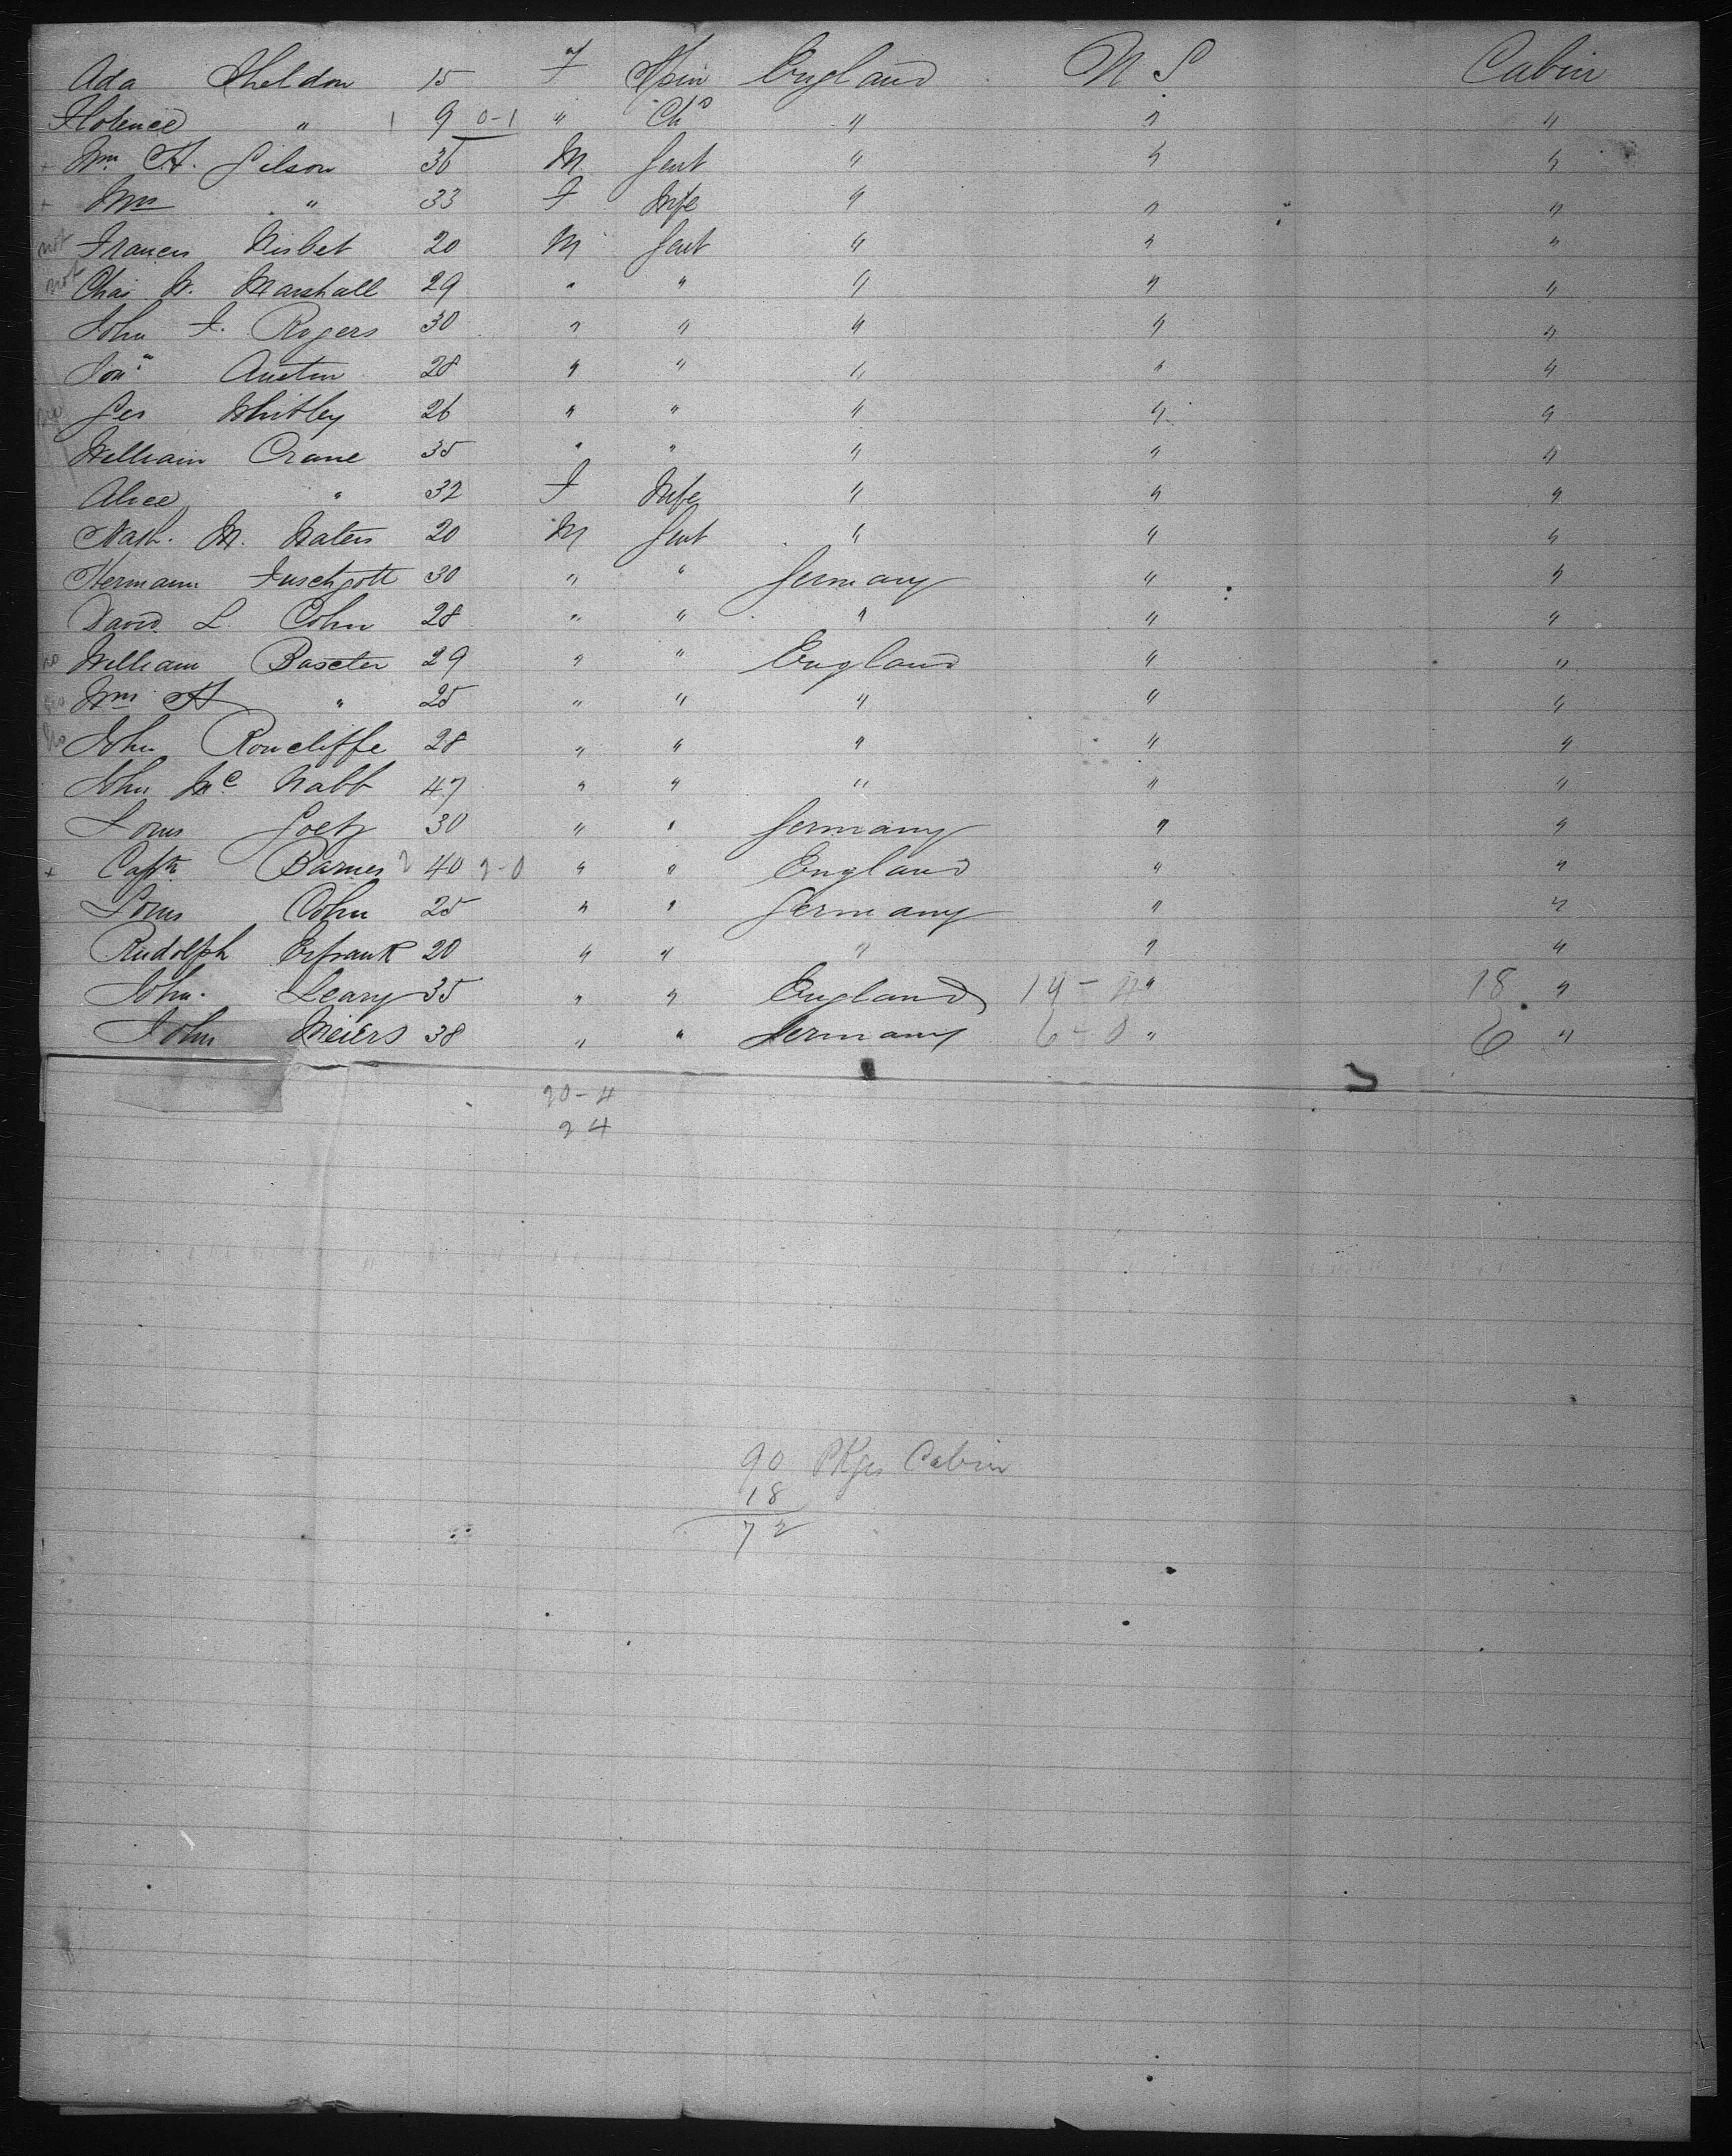 Ada Sheldon 15 F Spin England U S Cabin
Florence " 1 9 0-1 " Chd " " "
+ Wm H. Gilson 36 M Gent " " "
+ Mrs " 33 F Wife " " "
not Francis Nisbet 20 M Gent " " "
not Chas W. Marshall 29 " " " " "
John F. Rogers 30 " " " " "
Austin 28 " " " " "
Geo Whitley 26 " " " " "
William Crane 35 " " " " "
Alice " 32 F Wife " " "
Nath. M. Waters 20 M Gent " " "
Hermann 30 " " Germany " "
David L. Cohn 28 " " " " "
no William Baxter 29 " " England " "
no Wm H " 25 " " " " "
no John Roncliffe 28 " " " " "
John Mc Nabb 47 " " " " "
Louis Goetz 30 " " Germany " "
+ Captn Barnes 2 40 2-0 " " England " "
Louis Cohn 25 " " Germany " "
Rudolph Erfrank 20 " " " " "
John. Leary 35 " " England 14-4 " 18 "
John Meiers 38 " " Germany 6-0 " 6 "
20-4
24
90 Pkgs Cabin
18
72